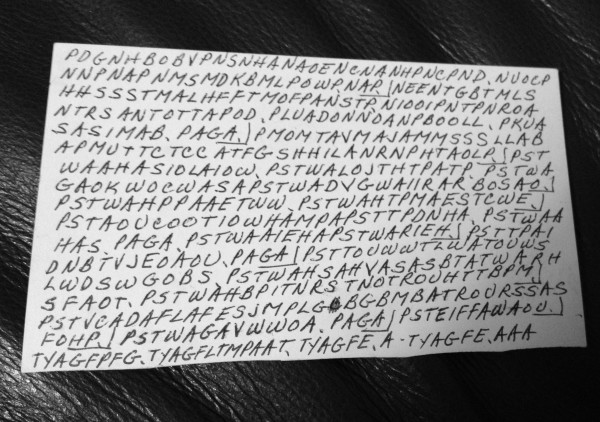 PDGNHBOBVPNSNHANAOENCNANHPNCPND. NUOCP
NNPNAPNMSMDKBMLPOWPNAP.] NEENTGBTMLS
HHSSSTMALHFFTMOFPANSTP. NIOOIPNTPNROA
NTRSANTOTTAPOD. PLUADONNOANPBOOLL. PKUA
SASIMAB. PAGA.] PMOMTAVMAJAMMSSSLLAB
APMUTTCTCC ATFGSHHILANRNPHTAOLP.] PST
WAAHASIOLAIOW. PSTWALOJTHTPATP. PSTWA
GAOKWOCWASAPSTWADVGWAIIRARBOSAO.]
PSTWAHPPAAETWW. PSTWAHTPMAESTCWE.]
PSTAOUCOOTIOWHAMPAPSTTPDNHA. PSTWAA
HAS. PAGA. PSTWAAIEHAPSTWARIEH.] PSTTPAI
DNBTVJEOAOU. PAGA.] PSTTOUWWTLWATOUWS
LWDSWGOBS. PSTWAHSAHVASASBTATWARH
SFAOT. PSTWAHBPITNRSTNOTROUHTTBPM.]
PSTVCADAFLAFESJMPLG BGBMBATROURSSAS
FOHP.] PSTWAGAVWWOA. PAGA.] PSTEIFFAWAOU.]
TYAGFPFG. TYAGFLTMPAAT. TYAGFE.A-TYAGFE.AAA